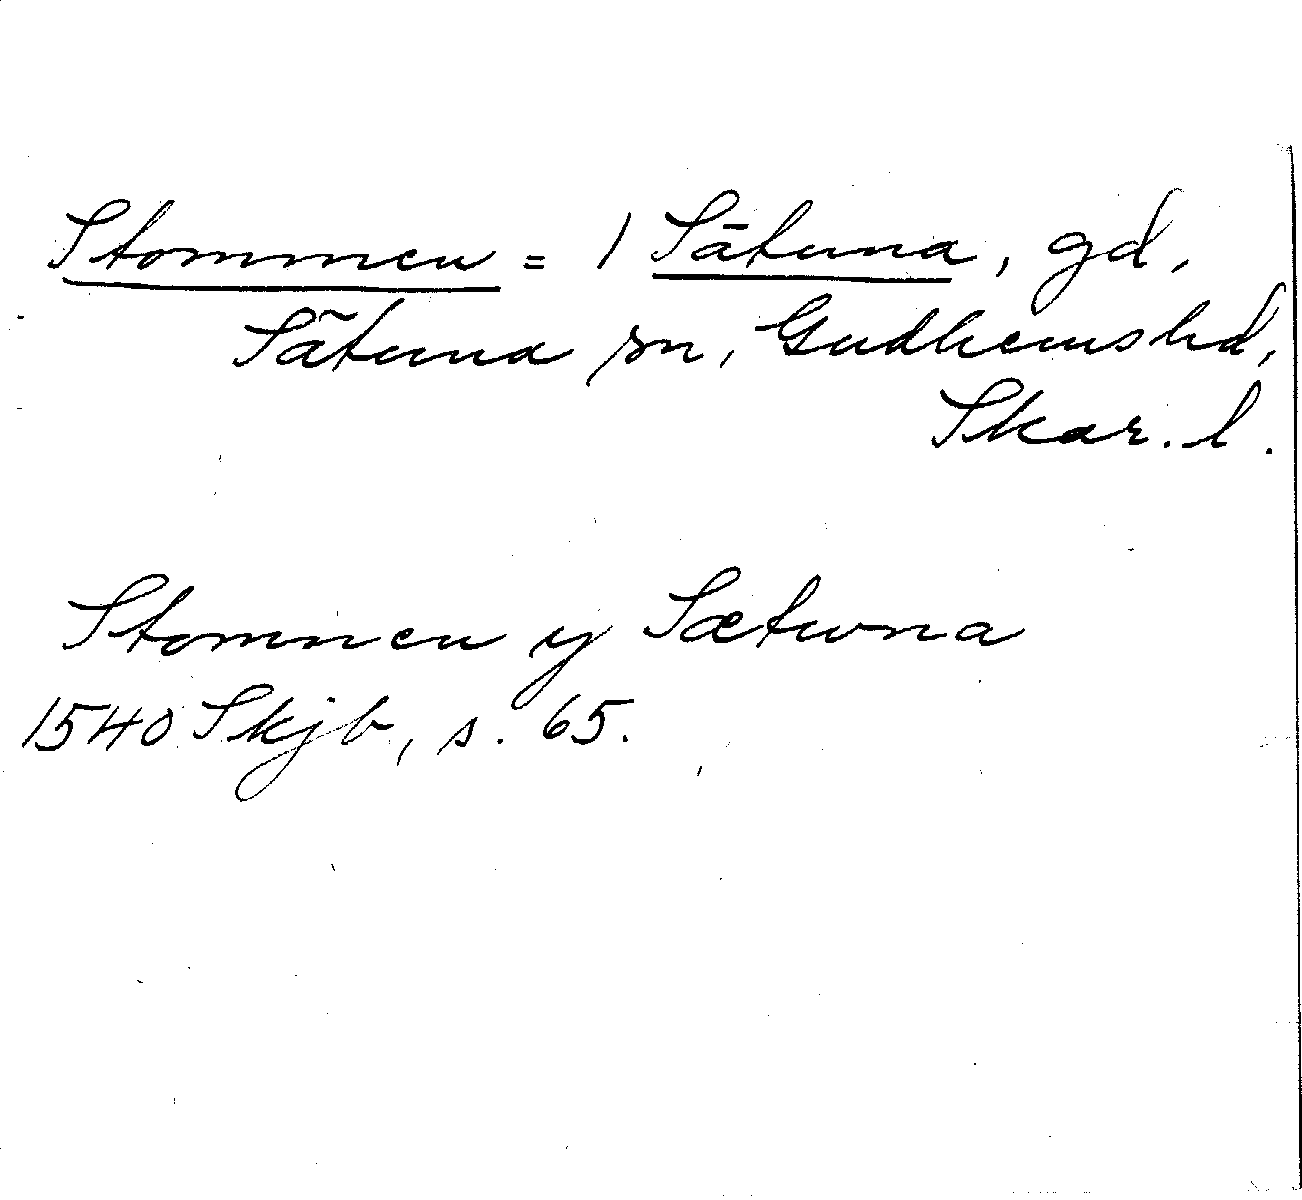 Stommen = 1 Sätuna, gd,
Sätuna sn, Gudhems hd,
Skar. l.
Stommen y Sætwna
1540 Skjb, s. 65.